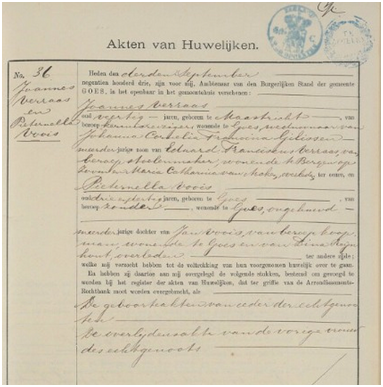 Akten van Huwelijken.
No. 36
Joannes
Verraas
en
Pieternella
Voois
Heden den derden September
negentien honderd drie, zijn voor mij, Ambtenaar van den Burgerlijken Stand der gemeente
GOES, in het openbaar in het gemeentehuis verschenen:
Joannes Verraas
oud veertig jaren, geboren te Maastricht, van
beroep, wonende te Goes, weduwnaar van
Johanna Cornelia Francina
meerderjarige zoon van Eduard Franciscus Verraas, van
beroep stoelenmaker, wonende te Bergen op
Zoom en Maria Catharina van, ter eene, en
Pieternella Voois
oud drie en dertig jaren, geboren te Goes, van
beroep zonder, wonende te Goes, ongehuwd
meerderjarige dochter van Jan Voois, van beroep koop
man, wonende te Goes en van
hout, overleden ter andere zijde;
welke mij verzocht hebben tot de voltrekking van hun voorgenomen huwelijk over te gaan.
En hebben zij daartoe aan mij overgelegd de volgende stukken, bestemd om gevoegd te
worden bij het register der akten van Huwelijken, dat ter griffie van de Arrondissements-
Rechtbank moet worden overgebracht, als
De geboorteakten van ieder der echtgenoo
ten
De overlijdensakte van de vorige vrouw
des echtgenoots